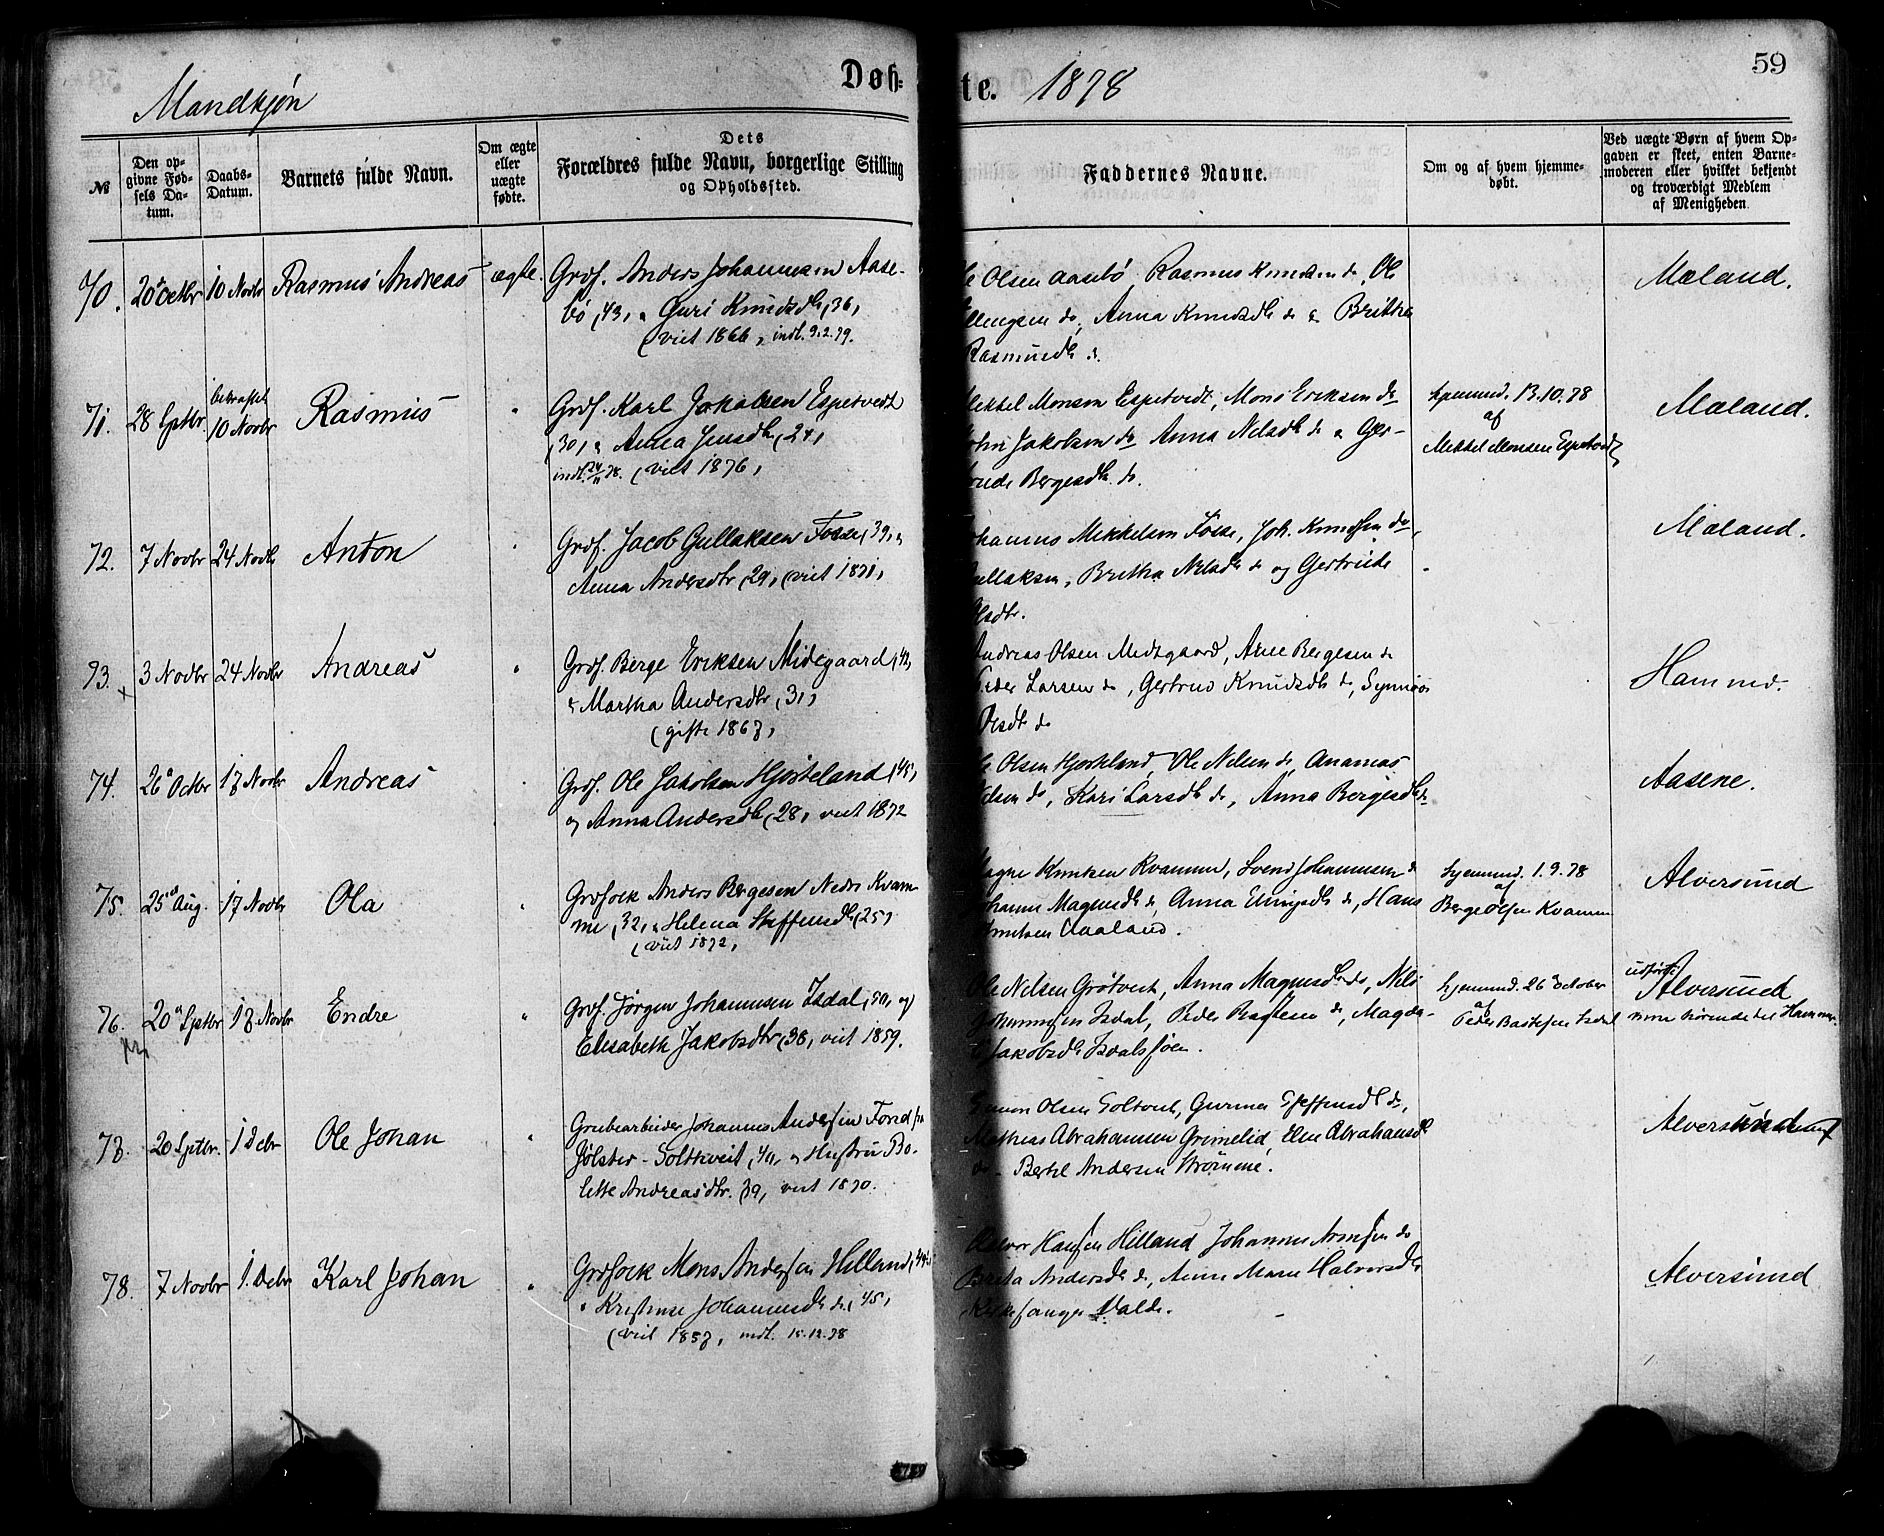 Mandkjøn
Døb-
te. 1878
59
№
Den op-
givne Fød-
sels Da-
tum.
Daabs-
Datum.
Barnets fulde Navn.
Om ægte
eller
uægte
fødte.
Dets
Forældres fulde Navn, borgerlige Stilling
og Opholdssted.
Faddernes Navne.
Om og af hvem hjemme-
døbt.
Ved uægte Børn af hvem Op-
gaven er skeet, enten Barne-
moderen eller hvilket bekjendt
og troværdigt Medlem
af Menigheden.
70. 20 Octbr 10 Novbr Rasmus Andreas ægte. Grdf. Anders Johannesen Aase-
bø, 43, & Guri Knudsdtr, 36,
(viet 1866, indl. 9.2.79.
Olsen Aasebø Rasmus Knudsen do, Ole
Ellingsen do, Anna Knudsdtr do & Britha
Rasmusdtr do.
Mæland.
71. 28 Septbr bekræftet
10 Novbr Rasmus " Grdf. Karl Jakobsen Espetvedt
,30, & Anna Jensdtr (24,
indl. 24/11 78. (viet 1876,
Mikkel Monsen Espetvedt, Mons Eriksen do
John Jakobsen do Anna Nelsdtr do & Ger-
trude Bergesdtr do.
hjemmed. 13.10.78
af
Mikkel Monsen Espetvedt
Mæland.
72. 7 Novbr 24 Novbr Anton " Grdf. Jacob Gullaksen Fosse, 39, &
Anna Andersdtr (29, (viet 1871,
Johannes Mikkelsen Fosse, Joh. Knudsen do
Gullaksen, Britha Nelsdtr do og Gertrude
Olsdtr.
Mæland.
73. 3 Novbr 24 Novbr Andreas " Grdf. Berge Eriksen Midtgaard, 42,
& Martha Andersdtr, 31,
(gifte 1867,
Andreas Olsen Midtgaard, Arne Bergesen do
Peder Larsen do, Gertrud Knudsdtr do, Synnøve
Olsdtr do
Hammer.
74. 26 Octbr 17 Novbr Andreas " Grdf. Ole Jakobsen Hjorteland, 45,
og Anna Andersdtr (28, viet 1872
Ole Olsen Hjorteland, Ole Nelsen do, Ananias
Nelsen do, Kari Larsdtr do, Anna Bergesdtr do
Aasene.
75. 25 Aug. 17 Novbr Ola " Grdfolk Anders Bergesen Nedre Kvam-
me, 32, & Helena Steffensdtr (25,
(viet 1872,
Magne Knutsen Kvamme, Svend Johannesen do
Johanne Magnesdtr do, Anna Elingsdtr do, Hans
Knutsen Aaland.
hjemmed. 1.9.78
af
Berge Olsen Kvamme
Alversund
76. 20 Septbr 17 Novbr Endre " Grdf. Jørgen Johannesen Isdal, 50, og
Elisabeth Jakobsdtr (38, viet 1859.
Ole Nelsen Grøtveit, Anna Magnesdtr do, Nils
Johannessen Isdal, Peder Bastesen do, Magda-
Jakobsdtr Isdalssjøen.
hjemmed. 26 October
af
Peder Bastesen Isdal
udført
Alversund
men hørende til Hammer
77. 20 Septbr. 1 Debr Ole Johan " Grubearbeider Johannes Andersen Fond fra
Jølster - Soltveit, 40, & Hustru Bo-
lette Andreasdtr. 39, viet 1870.
Simon Olsen Soltveit, Gurina Steffensdtr do,
Mathias Abrahamsen Grimelid Elen Abrahamsdtr
do - Bertel Andersen Strømme.
Alversund
78. 7 Novbr 1. Debr Karl Johan " Grdfolk Mons Andersen Hilland, 44,
& Kristine Johannesdtr do, 45,
(viet 1857, indl. 15.12.78
Halvor Hansen Hilland Johannes Arnesen do
Brita Andersdtr do, Anne Marie Halversdtr
Kirkesanger Valde.
Alversund